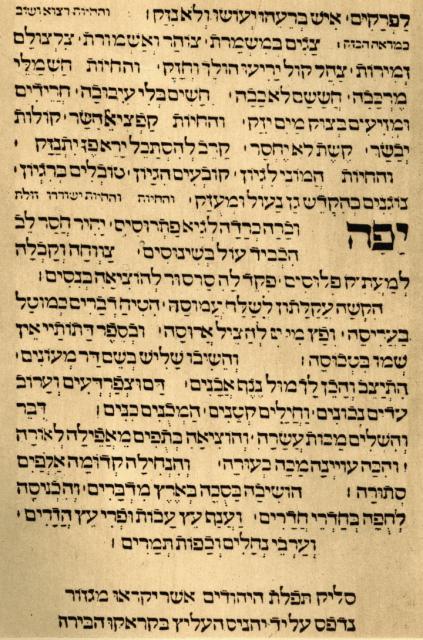 לפרקים׳ איש ברעהו יעושו ולא נזק׃ והחיות רצוא ושוב
כמראה הבזק׃ צגים במשמרת׳ צוהר ואשמורת׳ צלצולם
זמירות׳ צהר קול יריעו הולך וחזק׳ והחיות חשמלי
מרכבה׳ חששם לא כבה׳ חשים בלי עיכובה׳ חרידים
ומזיעים ביצוק מים יזק׳ והחיות קפציא השר׳ קולות
יבשר׳ קשת לא יחסר׳ קרב להסתכל יתנזק׳
והחיות המוני לגיון׳ קובעים הגיון׳ טובלים ברגיון׳
גן נעול ומעזק׳ והחיות והחיות ישודרו זולת
יפה וברה כרדה לגיא פתרוסים׳ חסר לב
הכביד עול בשינוסים׳ צווחה וקבלה
פלוסים׳ פקד לה סרסור להוציאה בנסים׃
הקשה עקלתון לשלח עמוסה׳ הטיח דברים במוטל
בעריסה׳ ופץ להציל ארוסה׳ ובספר דתותיי אין
שמו בטכוסה׃ והשיבו שליש בשם דר מעונים׳
התיצב והכן לדמול נגף אבנים׳ דם וצפרדעים וערוב
עדים נבונים׳ וחיילים קטנים׳ המכנים כנים׃ דבר
והשלים מכות עשרה׳ והוציאה בתפים מאפילה לאורה
והבה עוזיינה מכה בעורה׳ והנחילה קדומה אלפים
סתורה׃ הושיבה בסכה בארץ מדברים׳ והכניסה
לחפה בחדרי חדרים׳ וענף עץ עבות ופרי עץ הדרים׳
וערבי נחלים וכפות תמרים׃
סליק תפלת היהודים אשר יקראו מגזור
נדפס על יד יהניס העליץ בקראקו הבירה